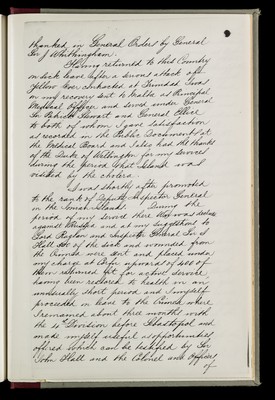 thanked in General Orders by General
Sir J Whittingham.
Having returned to this Country
on sick leave after a severe attack of
Yellow Fever contracted at Trinidad I was
on my recovery sent to Malta as Principal
Medical Officer and served under General
Sir Patrick Stewart and General Ellice
to both of whom I gave satisfaction
as recorded in the Public Documents at
the Medical Board and I also had the thanks
of the Duke of Wellington for my services
during the period that Island was
visited by the cholera.
I was shortly after promoted
to the rank of Deputy Inspector General
in the Ionian Islands. During the
period of my service there War was declared
against Russia and at my suggestion to
Lord Raglan and Inspector General Sir J
Hall 400 of the sick and wounded from
the Crimea were sent and placed under
my charge at Corfu upwards of 400 of
them returned fit for active service
having been restored to health in an
unusually short period and I myself
proceeded on leave to the Crimea where
I remained about three months with
the 4th Division before Sebastopol and
made myself useful as opportunities
offered which can be testified by Sir
John Hall and the Colonel and Officers
of